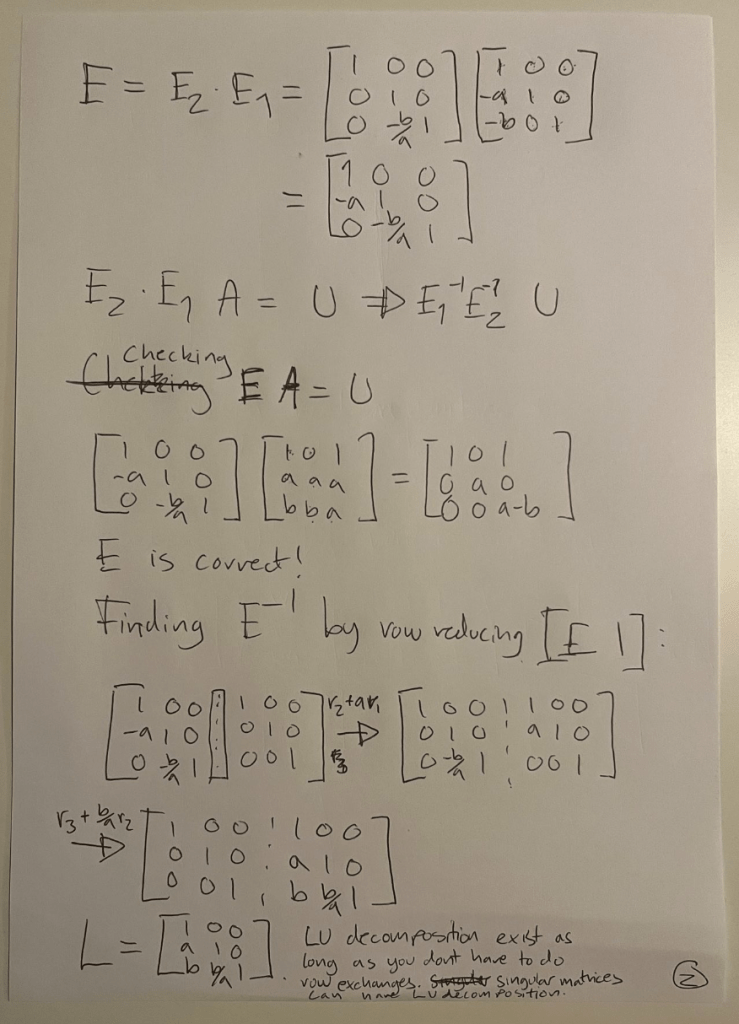 E = E₂ · E₁ = [1 0 0; 0 1 0; 0 -b/a 1] [1 0 0; -a 1 0; -b 0 1]
= [1 0 0; -a 1 0; 0 -b/a 1]
E₂ · E₁ A = U ⇒ E₁⁻¹ E₂⁻¹ U
Checking E A = U
[1 0 0; -a 1 0; 0 -b/a 1] [1 0 1; a a a; b b a] = [1 0 1; 0 a 0; 0 0 a-b]
E is correct!
Finding E⁻¹ by row reducing [E I]:
[1 0 0 ¦ 1 0 0; -a 1 0 ¦ 0 1 0; 0 -b/a 1 ¦ 0 0 1] r₂+ar₁ → [1 0 0 ¦ 1 0 0; 0 1 0 ¦ a 1 0; 0 -b/a 1 ¦ 0 0 1]
r₃ + b/a r₂ → [1 0 0 ¦ 1 0 0; 0 1 0 ¦ a 1 0; 0 0 1 ¦ b b/a 1]
L = [1 0 0; a 1 0; b b/a 1].
LU decomposition exist as
long as you dont have to do
row exchanges. singular matrices
can have LU decomposition.
2